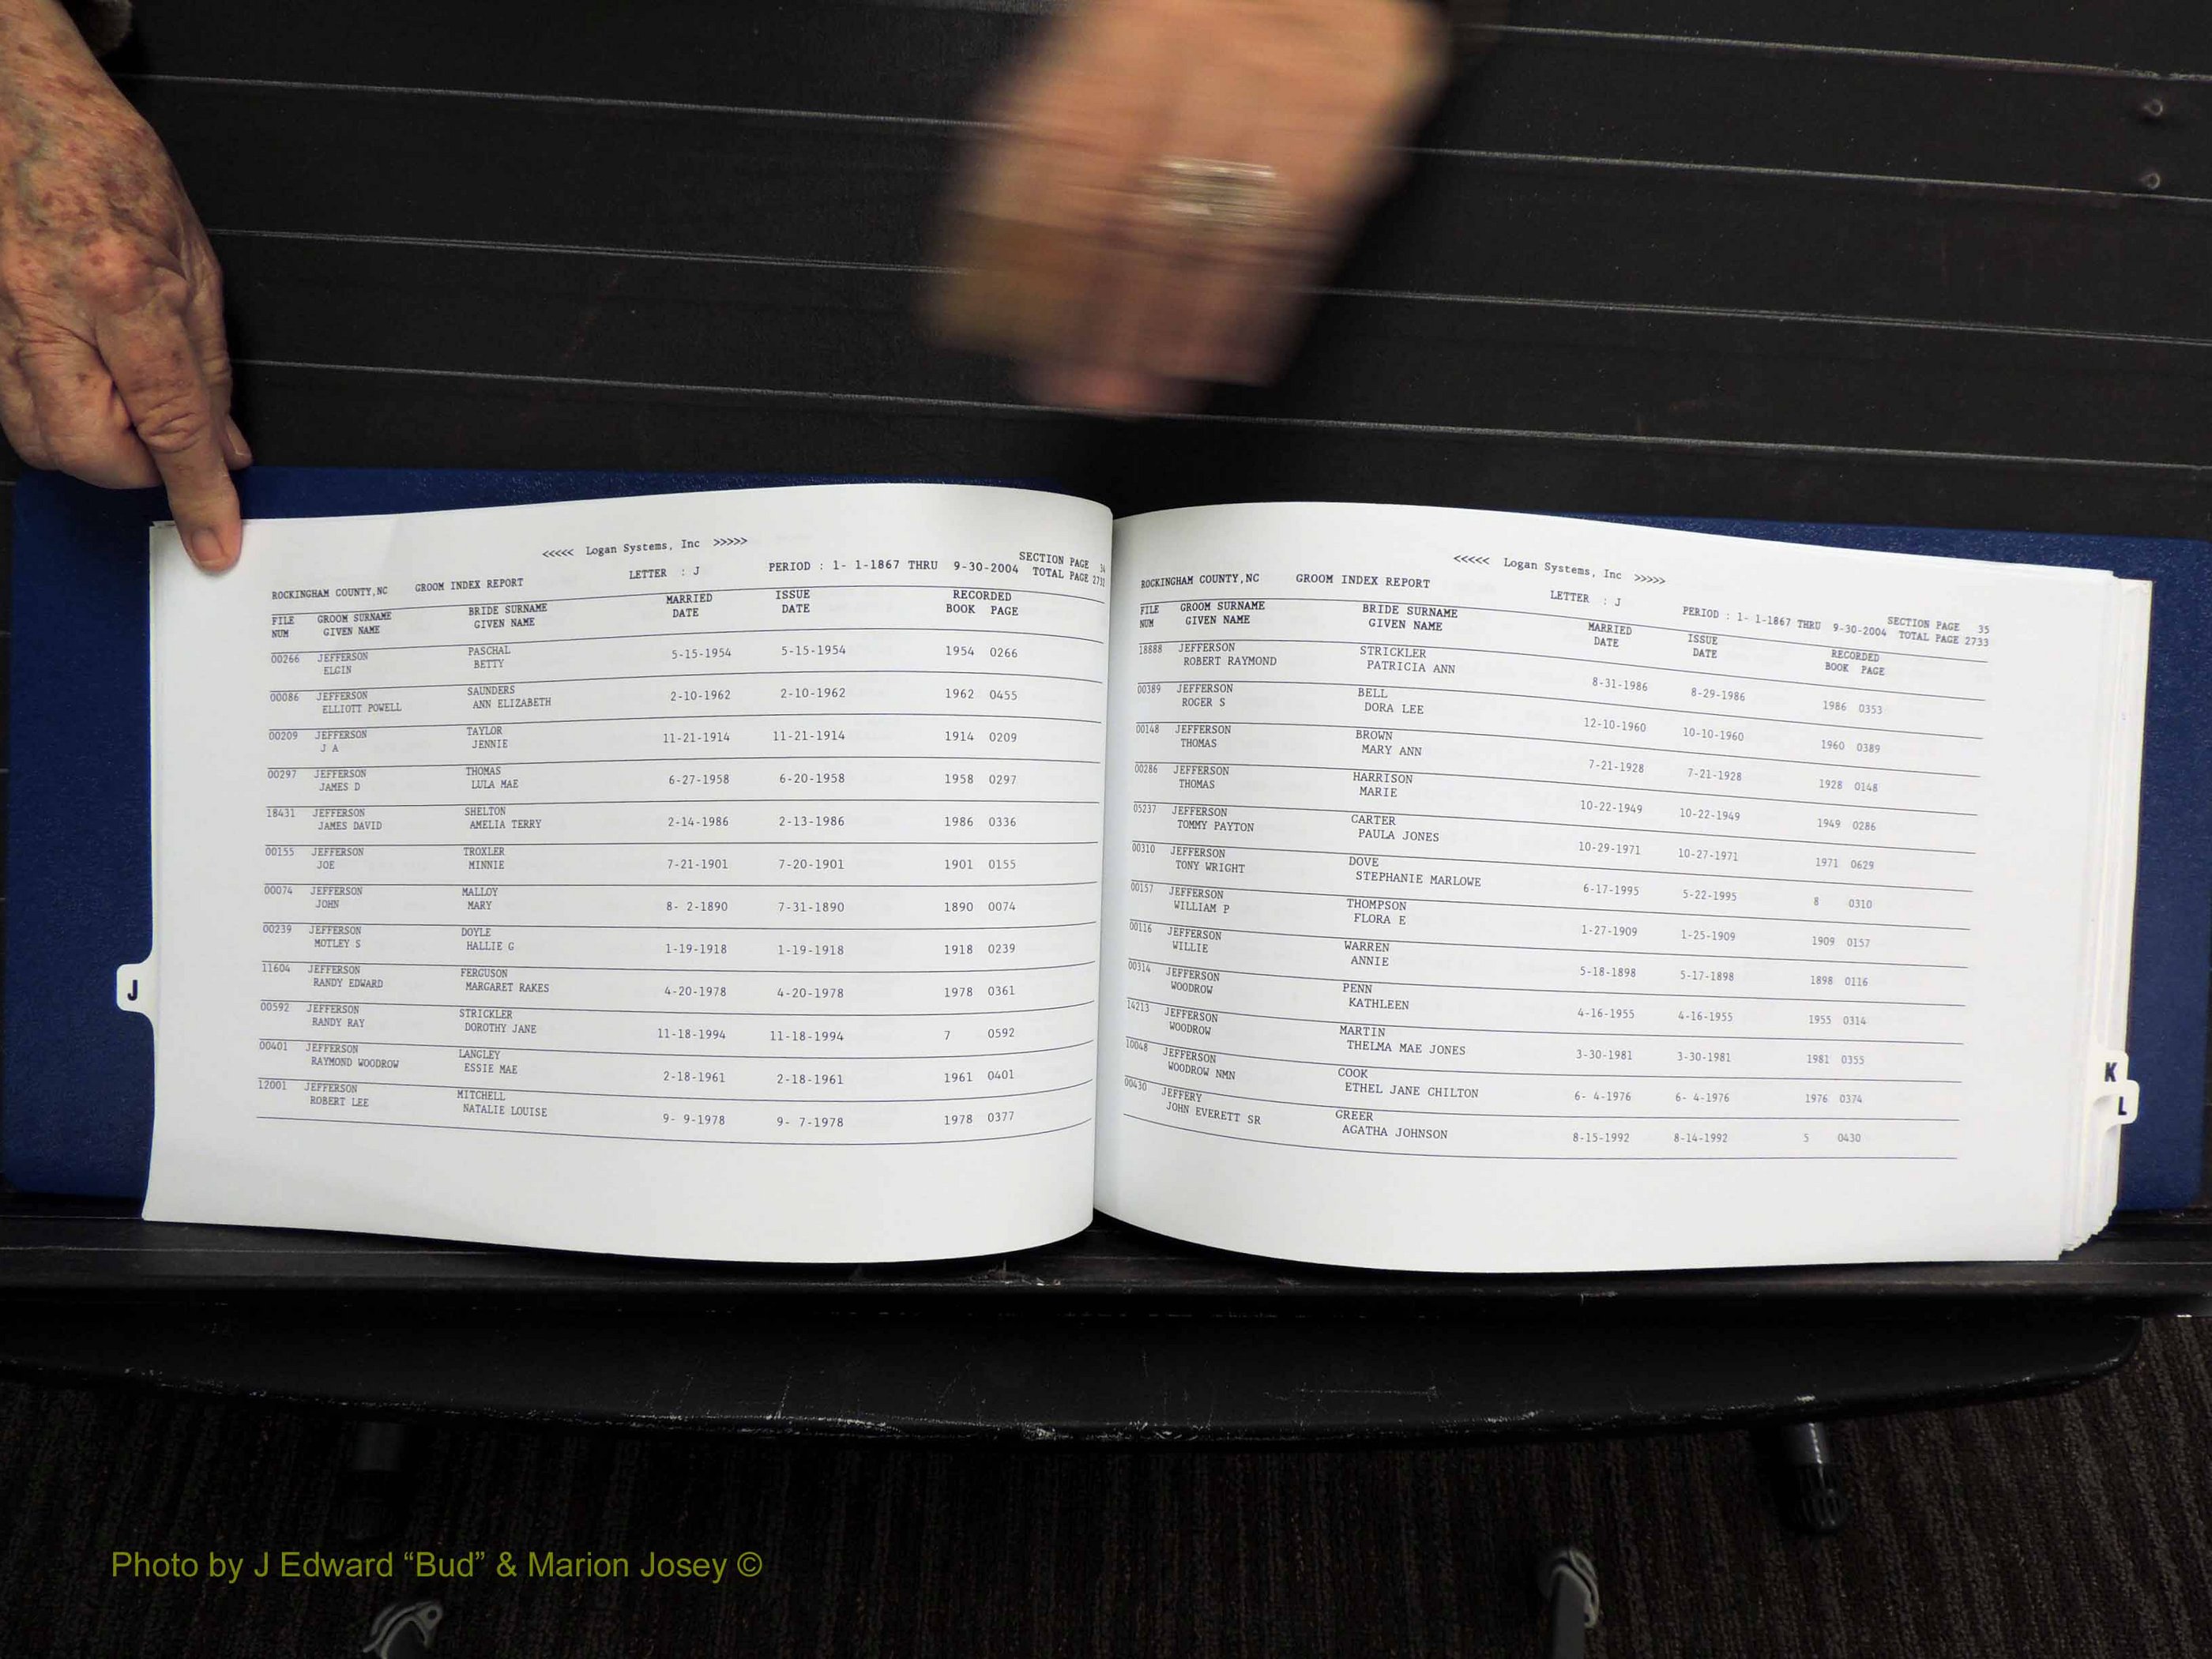 <<<<< Logan Systems, Inc >>>>>
SECTION PAGE 34
ROCKINGHAM COUNTY,NC GROOM INDEX REPORT LETTER : J PERIOD : 1- 1-1867 THRU 9-30-2004 TOTAL PAGE 2732
FILE GROOM SURNAME BRIDE SURNAME MARRIED ISSUE RECORDED
NUM GIVEN NAME GIVEN NAME DATE DATE BOOK PAGE
00266 JEFFERSON PASCHAL 5-15-1954 5-15-1954 1954 0266
ELGIN BETTY
00086 JEFFERSON SAUNDERS 2-10-1962 2-10-1962 1962 0455
ELLIOTT POWELL ANN ELIZABETH
00209 JEFFERSON TAYLOR 11-21-1914 11-21-1914 1914 0209
J A JENNIE
00297 JEFFERSON THOMAS 6-27-1958 6-20-1958 1958 0297
JAMES D LULA MAE
18431 JEFFERSON SHELTON 2-14-1986 2-13-1986 1986 0336
JAMES DAVID AMELIA TERRY
00155 JEFFERSON TROXLER 7-21-1901 7-20-1901 1901 0155
JOE MINNIE
00074 JEFFERSON MALLOY 8- 2-1890 7-31-1890 1890 0074
JOHN MARY
00239 JEFFERSON DOYLE 1-19-1918 1-19-1918 1918 0239
MOTLEY S HALLIE G
11604 JEFFERSON FERGUSON 4-20-1978 4-20-1978 1978 0361
RANDY EDWARD MARGARET RAKES
00592 JEFFERSON STRICKLER 11-18-1994 11-18-1994 7 0592
RANDY RAY DOROTHY JANE
00401 JEFFERSON LANGLEY 2-18-1961 2-18-1961 1961 0401
RAYMOND WOODROW ESSIE MAE
12001 JEFFERSON MITCHELL 9- 9-1978 9- 7-1978 1978 0377
ROBERT LEE NATALIE LOUISE
J
<<<<< Logan Systems, Inc >>>>>
SECTION PAGE 35
ROCKINGHAM COUNTY,NC GROOM INDEX REPORT LETTER : J PERIOD : 1- 1-1867 THRU 9-30-2004 TOTAL PAGE 2733
FILE GROOM SURNAME BRIDE SURNAME MARRIED ISSUE RECORDED
NUM GIVEN NAME GIVEN NAME DATE DATE BOOK PAGE
18888 JEFFERSON STRICKLER 8-31-1986 8-29-1986 1986 0353
ROBERT RAYMOND PATRICIA ANN
00389 JEFFERSON BELL 12-10-1960 10-10-1960 1960 0389
ROGER S DORA LEE
00148 JEFFERSON BROWN 7-21-1928 7-21-1928 1928 0148
THOMAS MARY ANN
00286 JEFFERSON HARRISON 10-22-1949 10-22-1949 1949 0286
THOMAS MARIE
05237 JEFFERSON CARTER 10-29-1971 10-27-1971 1971 0629
TOMMY PAYTON PAULA JONES
00310 JEFFERSON DOVE 6-17-1995 5-22-1995 8 0310
TONY WRIGHT STEPHANIE MARLOWE
00157 JEFFERSON THOMPSON 1-27-1909 1-25-1909 1909 0157
WILLIAM P FLORA E
00116 JEFFERSON WARREN 5-18-1898 5-17-1898 1898 0116
WILLIE ANNIE
00314 JEFFERSON PENN 4-16-1955 4-16-1955 1955 0314
WOODROW KATHLEEN
14213 JEFFERSON MARTIN 3-30-1981 3-30-1981 1981 0355
WOODROW THELMA MAE JONES
10048 JEFFERSON COOK 6- 4-1976 6- 4-1976 1976 0374
WOODROW NMN ETHEL JANE CHILTON
00430 JEFFERY GREER 8-15-1992 8-14-1992 5 0430
JOHN EVERETT SR AGATHA JOHNSON
K
L
Photo by J Edward “Bud” & Marion Josey ©